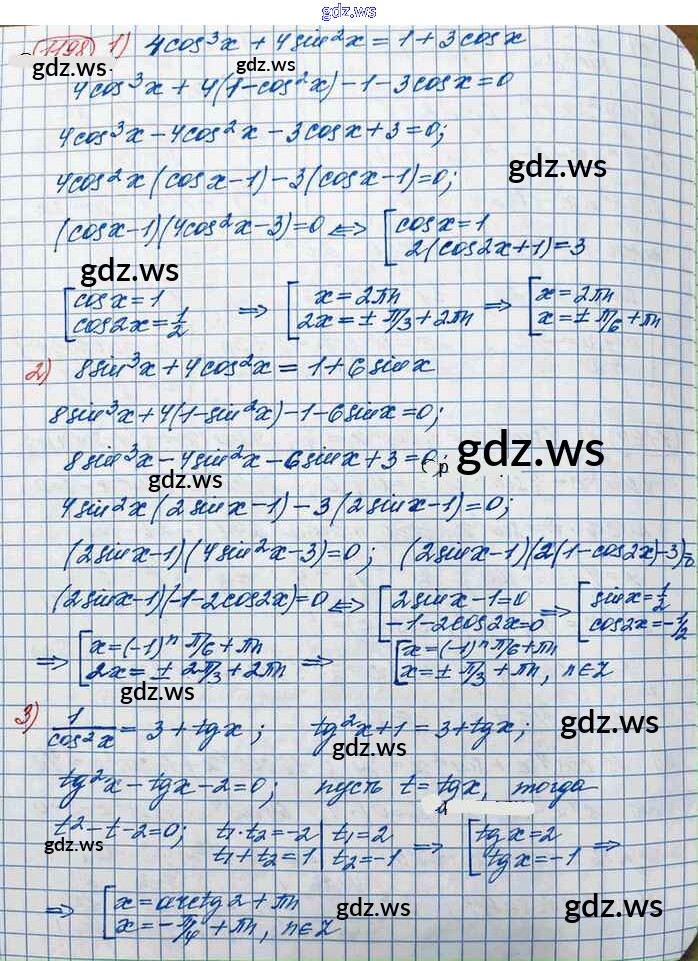 gdz.ws
1198 1) 4cos³x + 4sin²x = 1 + 3cosx
gdz.ws gdz.ws gdz.ws
4cos³x + 4(1-cos²x) - 1 - 3cosx = 0
4cos³x - 4cos²x - 3cosx + 3 = 0;
gdz.ws
4cos²x(cosx-1) - 3(cosx-1) = 0;
(cosx-1)(4cos²x-3) = 0 <=> [cosx = 1
2(cos2x+1) = 3
gdz.ws
[cosx = 1 => [x = 2πn => [x = 2πn
cos2x = 1/2 2x = ± π/3 + 2πn x = ± π/6 + πn
gdz.ws gdz.ws
2) 8sin³x + 4cos²x = 1 + 6sinx
8sin³x + 4(1-sin²x) - 1 - 6sinx = 0;
8sin³x - 4sin²x - 6sinx + 3 = 0;
gdz.ws gdz.ws
4sin²x(2sinx-1) - 3(2sinx-1) = 0;
(2sinx-1)(4sin²x-3) = 0; (2sinx-1)(2(1-cos2x)-3) = 0
(2sinx-1)(-1-2cos2x) = 0 <=> [2sinx-1 = 0 => [sinx = 1/2
-1-2cos2x = 0 cos2x = -1/2
gdz.ws gdz.ws
=> [x = (-1)ⁿ π/6 + πn => [x = (-1)ⁿ π/6 + πn
2x = ± 2π/3 + 2πn x = ± π/3 + πn, n∈Z
gdz.ws
3) 1/cos²x = 3 + tgx; tg²x + 1 = 3 + tgx;
gdz.ws gdz.ws
tg²x - tgx - 2 = 0; пусть t = tgx, тогда
t² - t - 2 = 0; t₁·t₂ = -2 | t₁ = 2 => [tgx = 2 =>
t₁ + t₂ = 1 | t₂ = -1 tgx = -1
gdz.ws gdz.ws
=> [x = arctg2 + πn
x = -π/4 + πn, n∈Z
gdz.ws gdz.ws